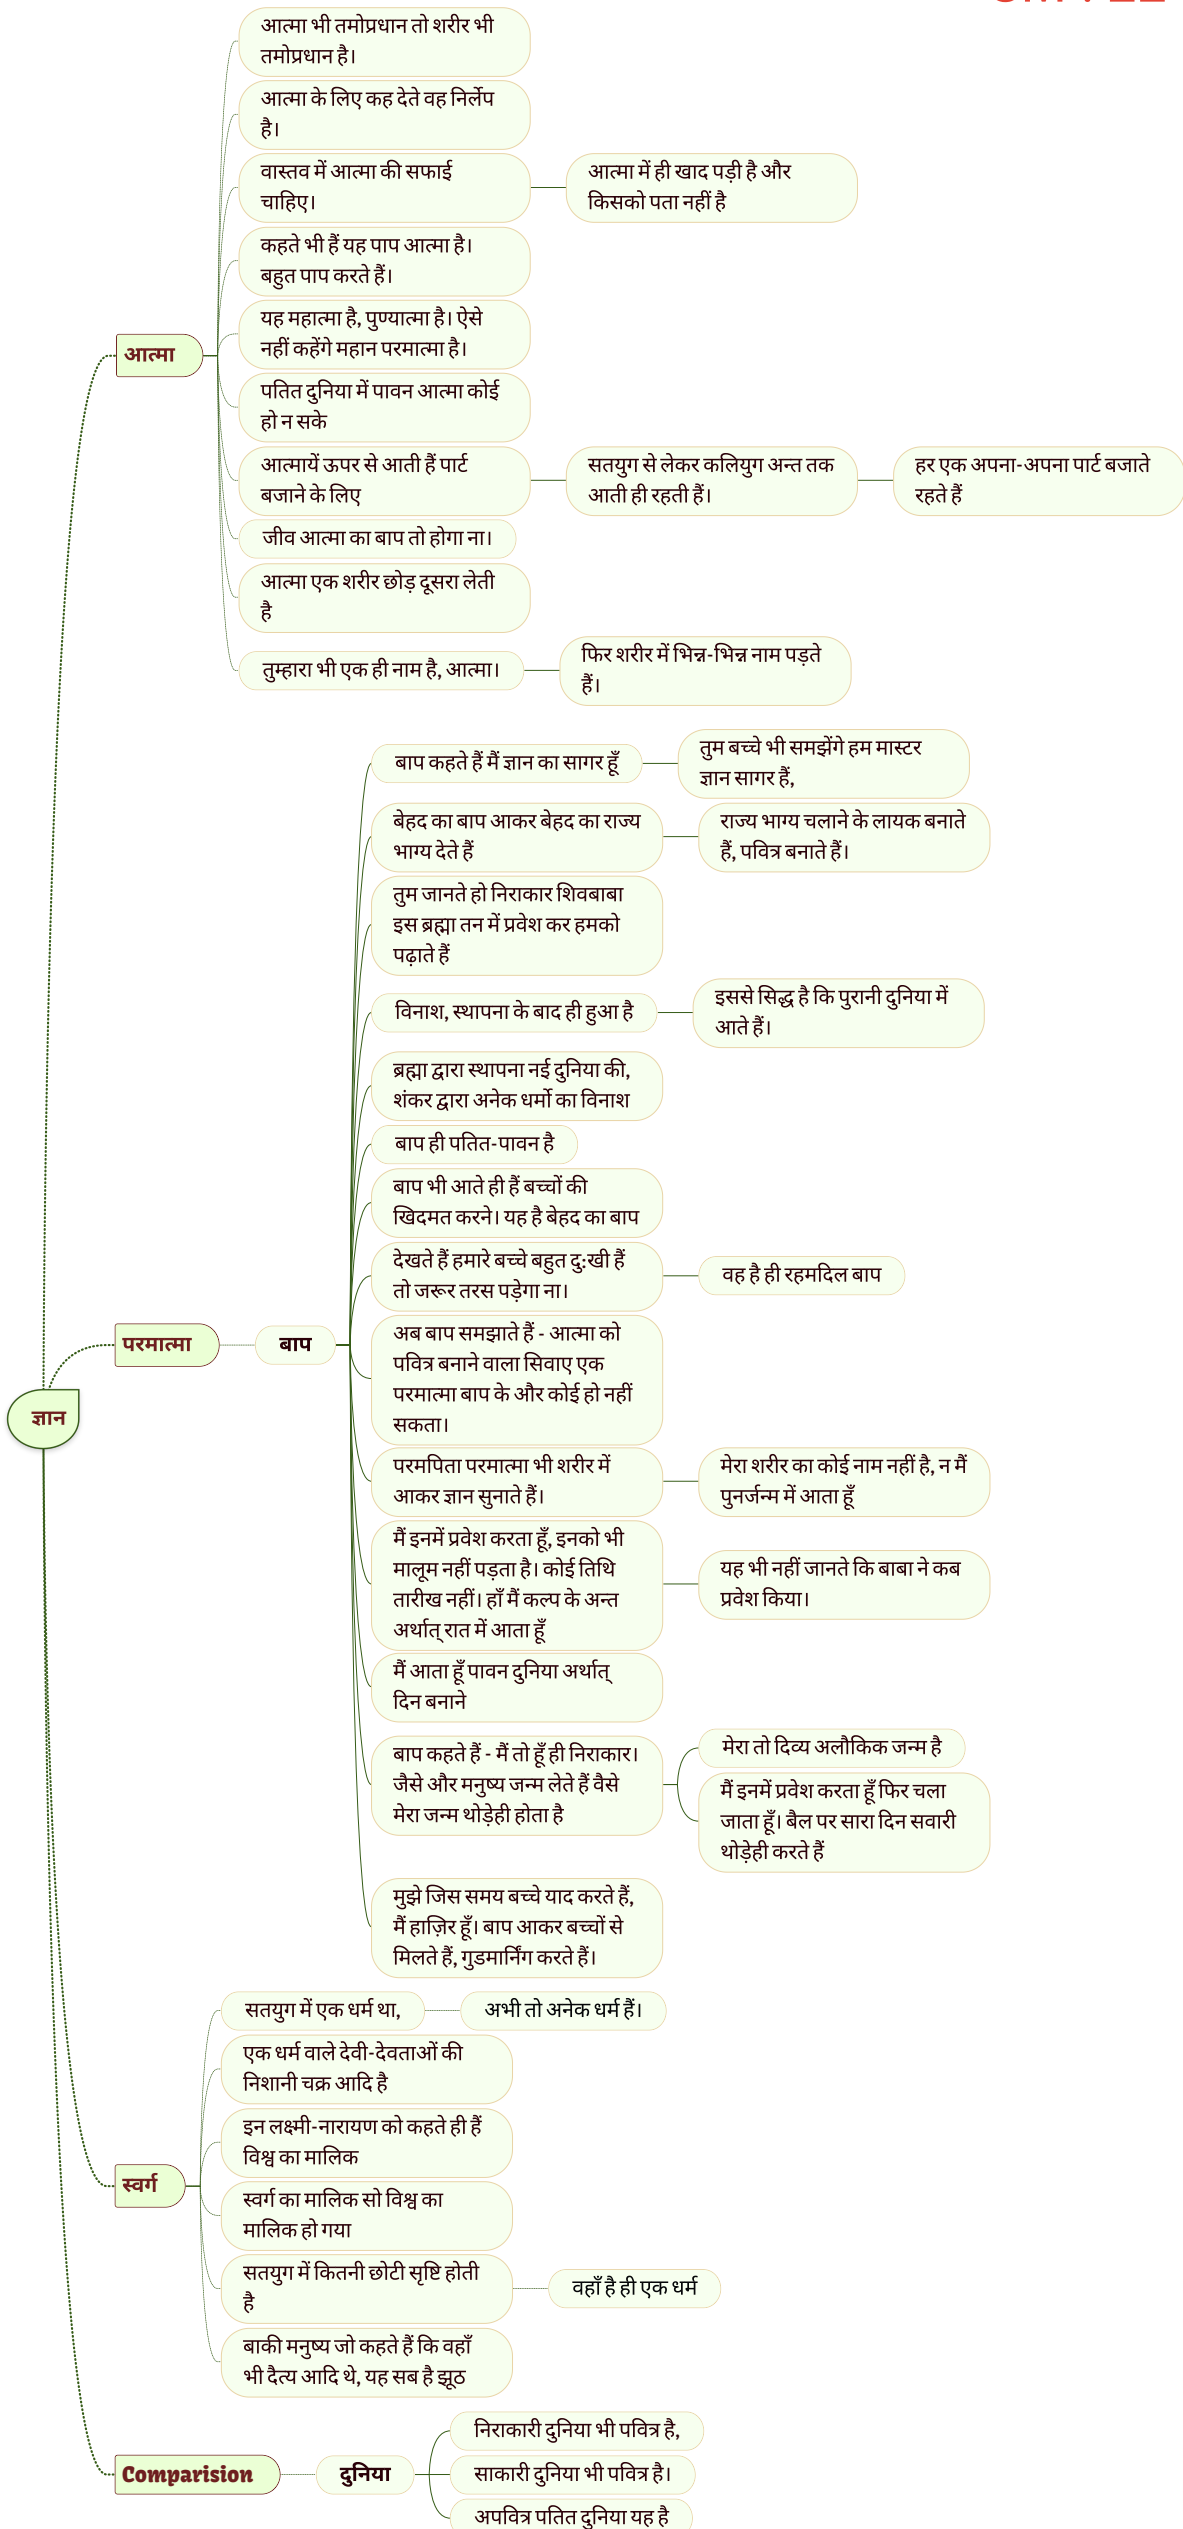 आत्मा भी तमोप्रधान तो शरीर भी
तमोप्रधान है।
आत्मा के लिए कह देते वह निर्लेप
है।
वास्तव में आत्मा की सफाई
चाहिए।
आत्मा में ही खाद पड़ी है और
किसको पता नहीं है
कहते भी हैं यह पाप आत्मा है।
बहुत पाप करते हैं।
यह महात्मा है, पुण्यात्मा है। ऐसे
नहीं कहेंगे महान परमात्मा है।
आत्मा
पतित दुनिया में पावन आत्मा कोई
हो न सके
आत्मायें ऊपर से आती हैं पार्ट
बजाने के लिए
सतयुग से लेकर कलियुग अन्त तक
आती ही रहती हैं।
हर एक अपना-अपना पार्ट बजाते
रहते हैं
जीव आत्मा का बाप तो होगा ना।
आत्मा एक शरीर छोड़ दूसरा लेती
है
तुम्हारा भी एक ही नाम है, आत्मा।
फिर शरीर में भिन्न-भिन्न नाम पड़ते
हैं।
बाप कहते हैं मैं ज्ञान का सागर हूँ
तुम बच्चे भी समझेंगे हम मास्टर
ज्ञान सागर हैं,
बेहद का बाप आकर बेहद का राज्य
भाग्य देते हैं
राज्य भाग्य चलाने के लायक बनाते
हैं, पवित्र बनाते हैं।
तुम जानते हो निराकार शिवबाबा
इस ब्रह्मा तन में प्रवेश कर हमको
पढ़ाते हैं
विनाश, स्थापना के बाद ही हुआ है
इससे सिद्ध है कि पुरानी दुनिया में
आते हैं।
ब्रह्मा द्वारा स्थापना नई दुनिया की,
शंकर द्वारा अनेक धर्मो का विनाश
बाप ही पतित-पावन है
बाप भी आते ही हैं बच्चों की
खिदमत करने। यह है बेहद का बाप
देखते हैं हमारे बच्चे बहुत दु:खी हैं
तो जरूर तरस पड़ेगा ना।
वह है ही रहमदिल बाप
परमात्मा
बाप
अब बाप समझाते हैं - आत्मा को
पवित्र बनाने वाला सिवाए एक
परमात्मा बाप के और कोई हो नहीं
सकता।
ज्ञान
परमपिता परमात्मा भी शरीर में
आकर ज्ञान सुनाते हैं।
मेरा शरीर का कोई नाम नहीं है, न मैं
पुनर्जन्म में आता हूँ
मैं इनमें प्रवेश करता हूँ, इनको भी
मालूम नहीं पड़ता है। कोई तिथि
तारीख नहीं। हाँ मैं कल्प के अन्त
अर्थात् रात में आता हूँ
यह भी नहीं जानते कि बाबा ने कब
प्रवेश किया।
मैं आता हूँ पावन दुनिया अर्थात्
दिन बनाने
बाप कहते हैं - मैं तो हूँ ही निराकार।
जैसे और मनुष्य जन्म लेते हैं वैसे
मेरा जन्म थोड़ेही होता है
मेरा तो दिव्य अलौकिक जन्म है
मैं इनमें प्रवेश करता हूँ फिर चला
जाता हूँ। बैल पर सारा दिन सवारी
थोड़ेही करते हैं
मुझे जिस समय बच्चे याद करते हैं,
मैं हाज़िर हूँ। बाप आकर बच्चों से
मिलते हैं, गुडमार्निंग करते हैं।
सतयुग में एक धर्म था,
अभी तो अनेक धर्म हैं।
एक धर्म वाले देवी-देवताओं की
निशानी चक्र आदि है
इन लक्ष्मी-नारायण को कहते ही हैं
विश्व का मालिक
स्वर्ग
स्वर्ग का मालिक सो विश्व का
मालिक हो गया
सतयुग में कितनी छोटी सृष्टि होती
है
वहाँ है ही एक धर्म
बाकी मनुष्य जो कहते हैं कि वहाँ
भी दैत्य आदि थे, यह सब है झूठ
निराकारी दुनिया भी पवित्र है,
Comparision
दुनिया
साकारी दुनिया भी पवित्र है।
अपवित्र पतित दुनिया यह है